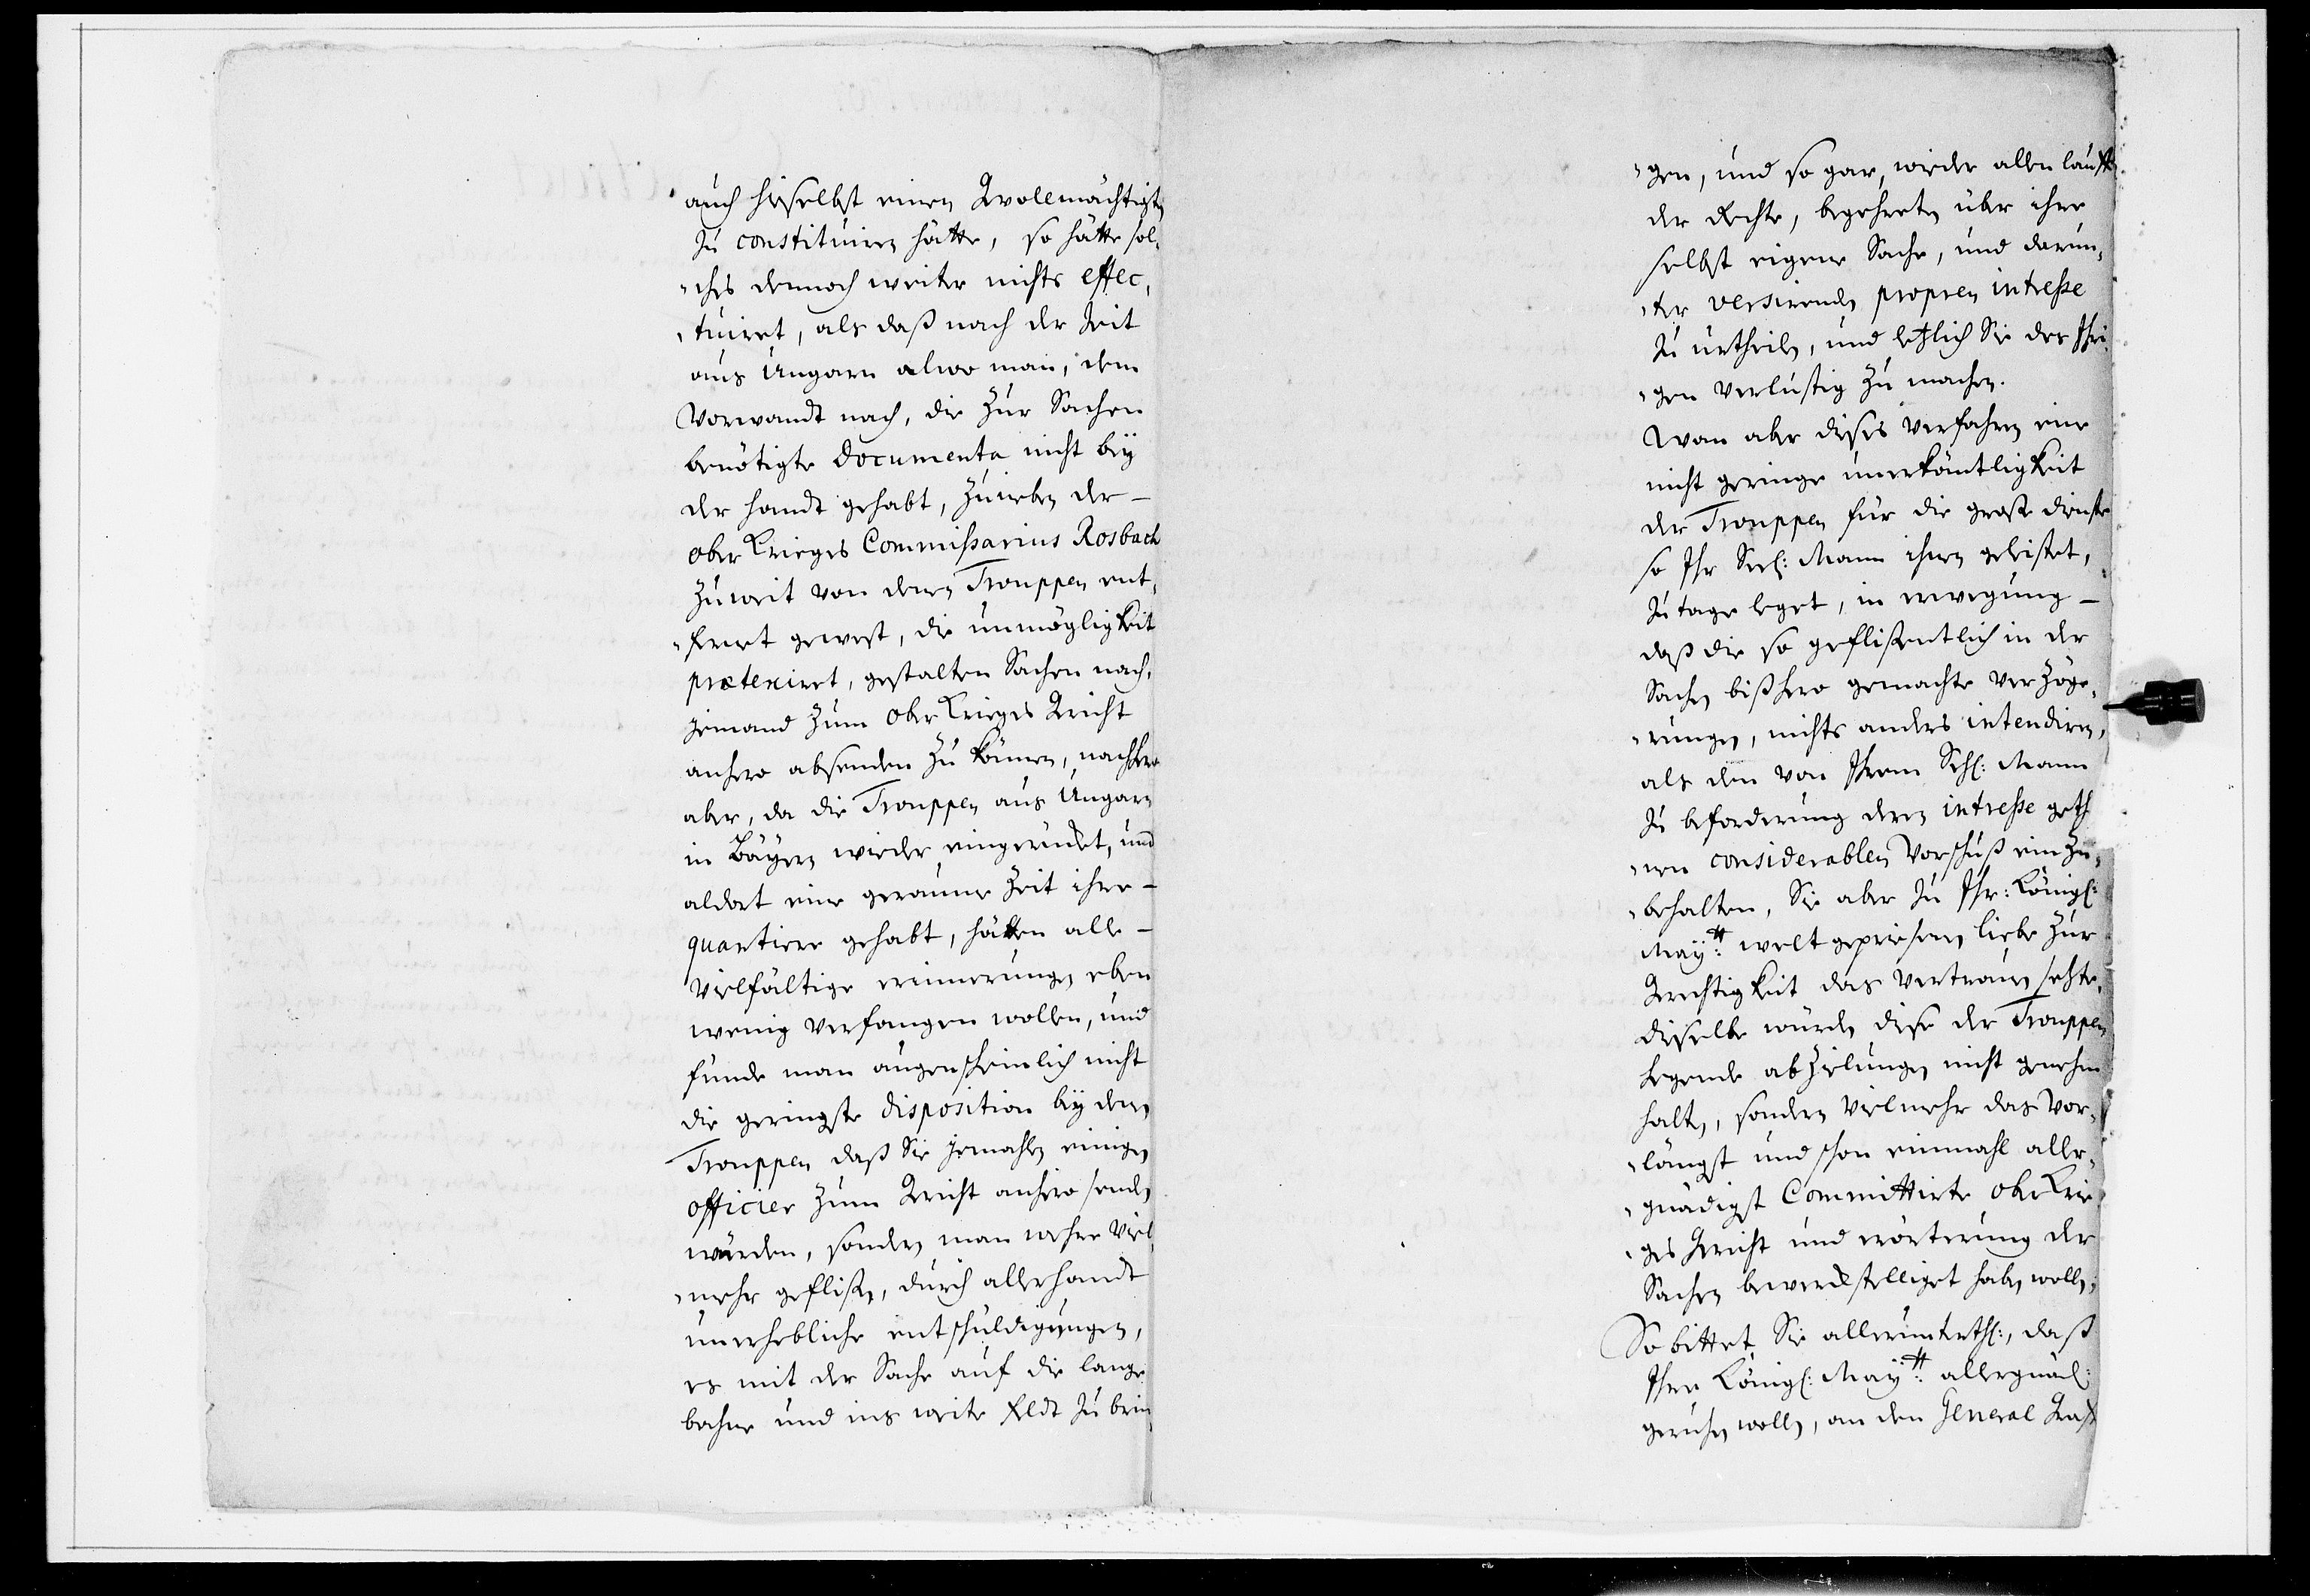 auch hieselbst einen Gevollmächtigten
zu constituiren hätte, so hätte sol¬
¬ches dennoch weiter nichts effec¬
¬tuiret, als daß nach der Zeit
aus Ungarn alwo man, dem
Vorwandt nach, die zur Sachen
benötigte Documenta nicht bey
der handt gehabt, zuneben der
ober Krieges Commissarius Rosbach
zu weit von denen Trouppen ent¬
¬fernet gewest, die unmögligkeit
prætexiret, gestalten Sachen nach,
jemand zum ober Krieges Gericht
anhero absenden zu können, nachhero
aber, da die Trouppen aus Ungarn
in Bäyern wieder eingerücket, und
aldort eine geraume Zeit ihre
quartiere gehabt, hätten alle
vielfältige erinnerungen eben
wenig verfangen wollen, und
funde man augenscheinlich nicht
die geringste disposition bey denen
Trouppen daß Sie jemahlen einigen
officier zum Gericht anhero senden
würden, sondern man wehre viel¬
¬mehr geflißen, durch allerhandt
unerhebliche entschuldigungen,
es mit der Sache auf die lange
bahne und ins weite Feldt zu brin¬
¬gen, und so gar, wieder allen lauff
der Rechte, begehreten über ihre
selbst eigene Sache, und darun¬
¬ter versirenden propren intresse
zu urtheilen, und letzlich Sie des Ihri¬
¬gen verlustig zu machen.
Wan aber dieses Verfahren eine
nicht geringe unerkäntligkeit
der Trouppen für die große dienste
so Ihr Seel: Mann ihnen geleistet,
zu tage leget, in erwegung
daß die so geflißentlich in der
Sachen bißhero gemachte verzöge¬
¬rungen, nichts anders intendiren,
als den von Ihrem Sehl: Mann
zu beforderung deren intresse geth
¬nen considerablen Vorschuß einzu¬
¬behalten, Sie aber zu Ihr: Königl:
May:tt weltgepriesenen liebe zur
Gerechtigkeit das Vertrauen setzte,
dieselbe würden diese der Trouppen
hegende abzielungen nicht genehm
halten, sondern vielmehr das vor¬
¬längst und schon einmahl aller¬
¬gnädigst Committirte ober Krie¬
¬ges Gericht und erörterung der
Sachen bewerckstelliget haben wollen;
So bittet Sie allerunterth:, daß
Ihre Königl: May:tt allergnäd:
geruhen wollen, an den General